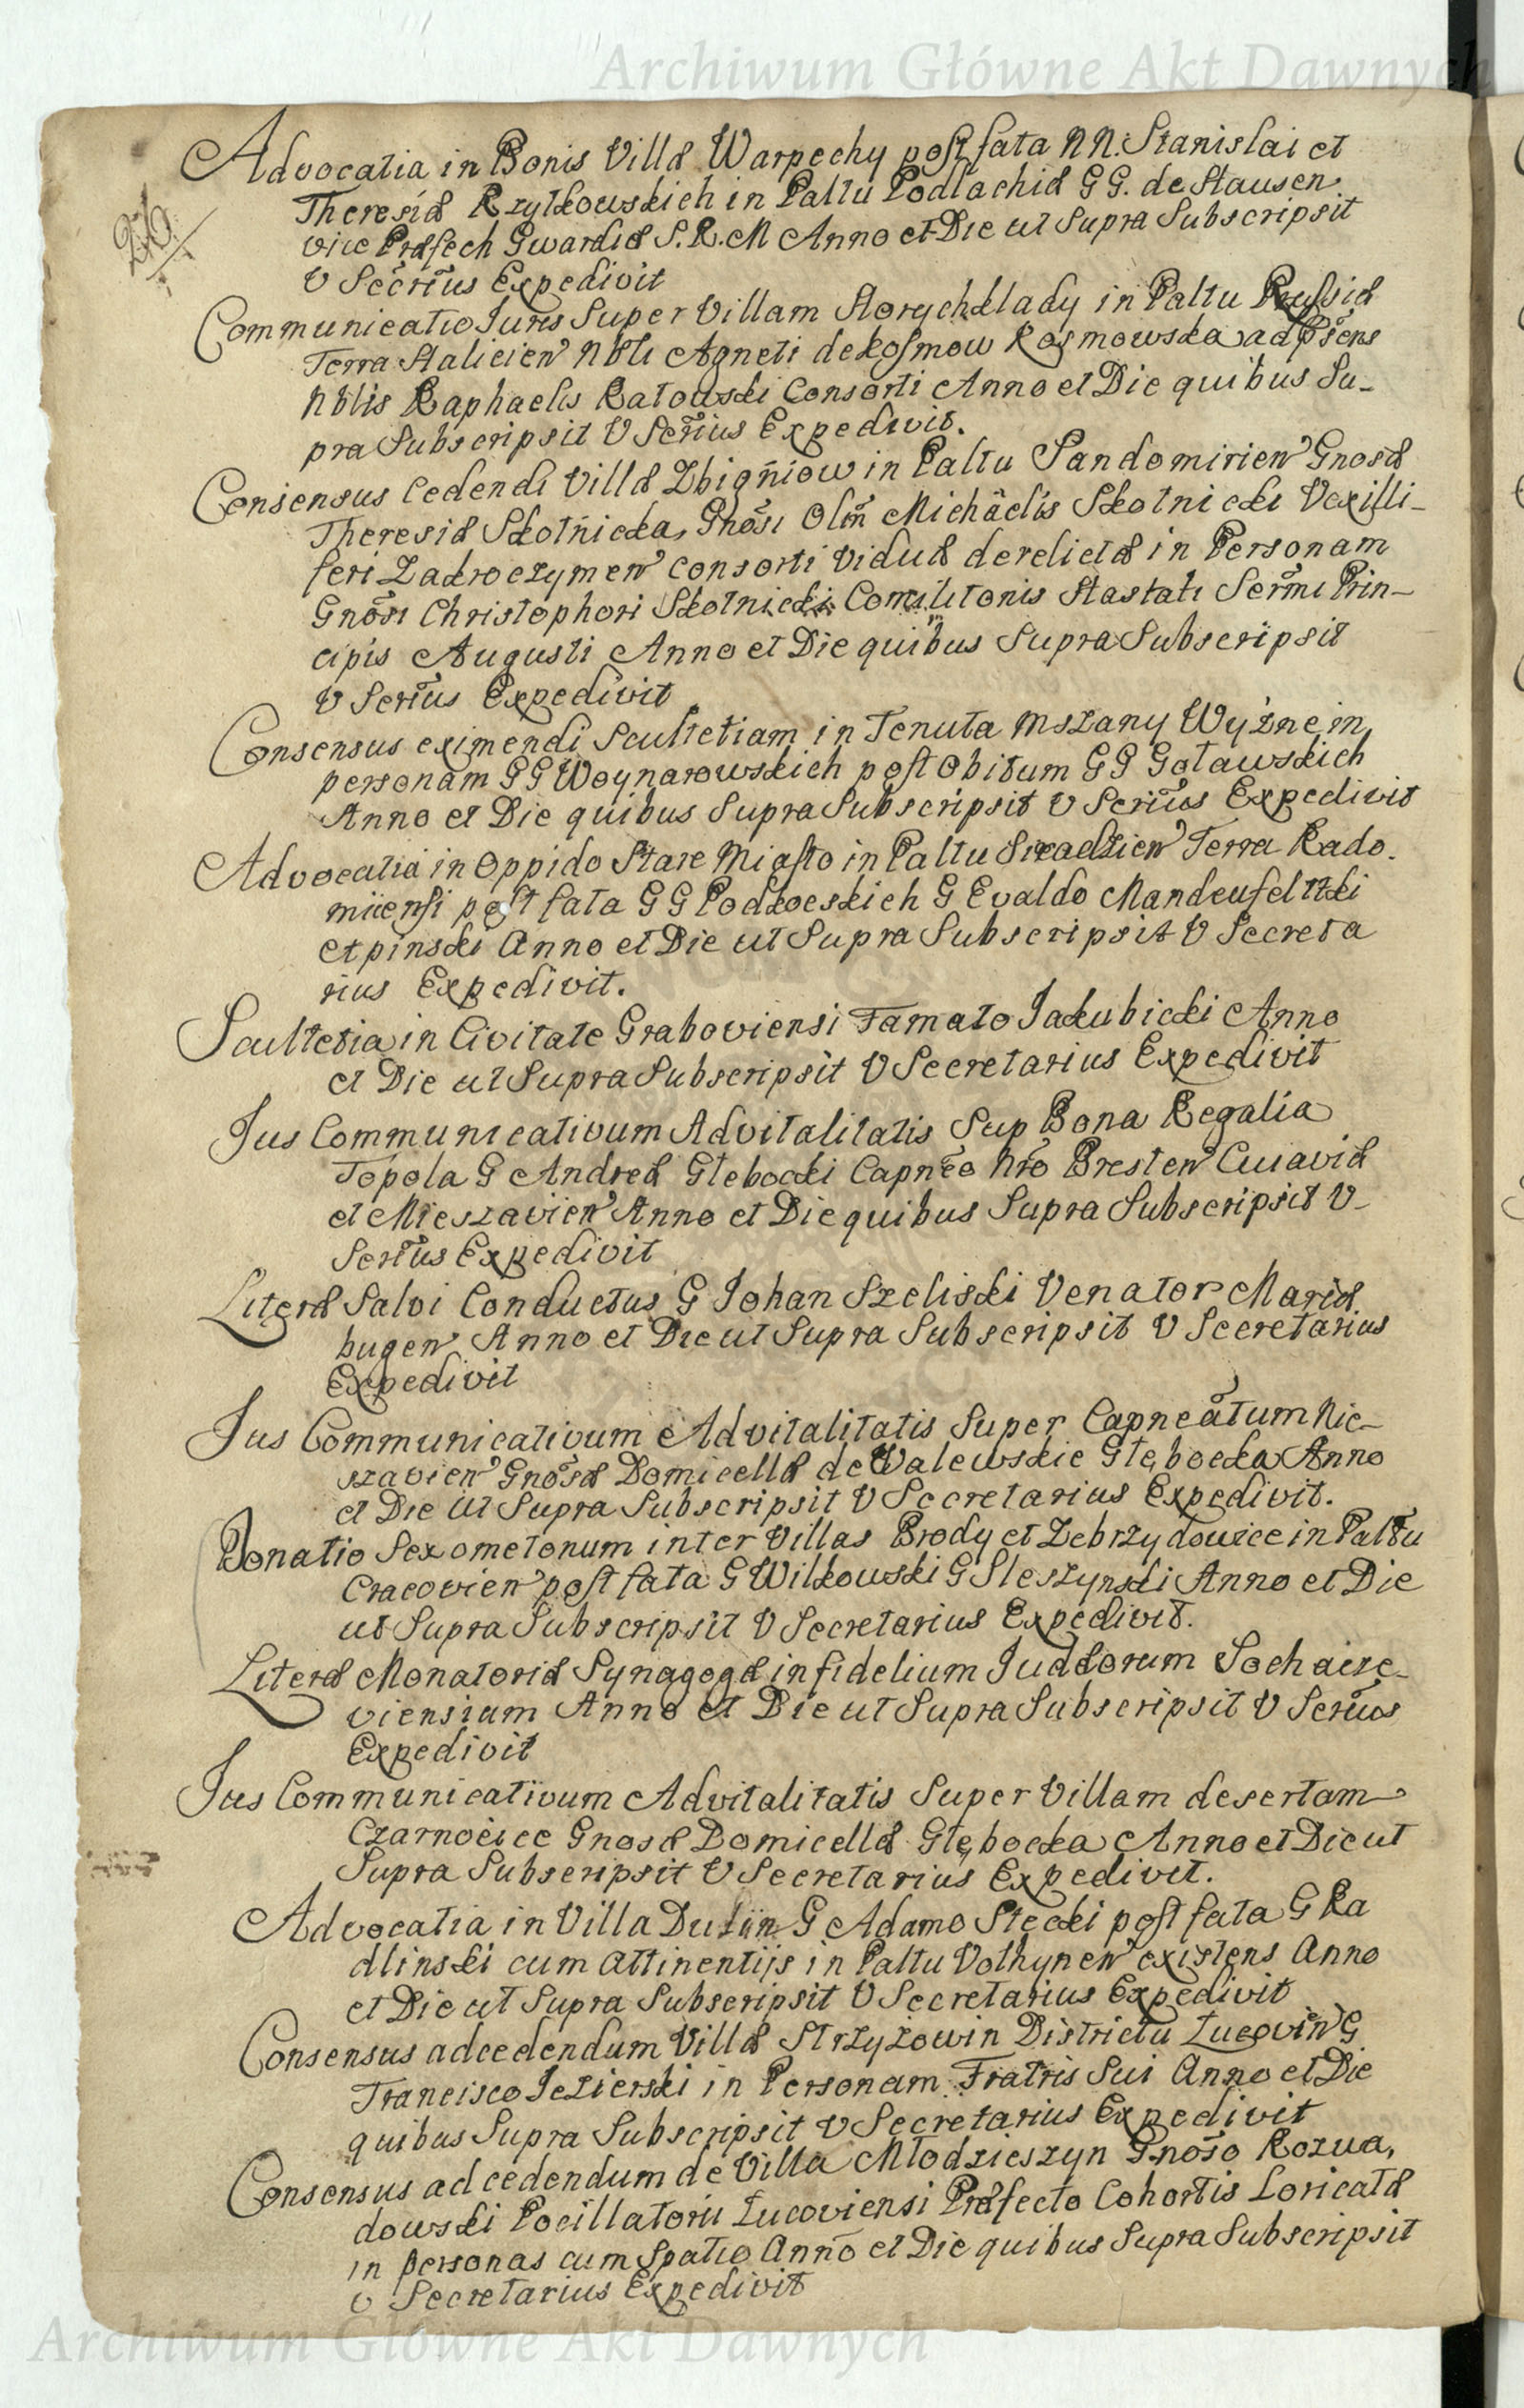 Archiwum Główne Akt Dawnych
Advocatia in Bonis Villæ Warpechy post fata NN. Stanislai et
Theresiæ Rzytkowskich in Paltu Podlachiæ GG. de Stausen
vice Præfech Gwardiæ S.R.M Anno et Die ut Supra Subscripsit
V Secrius Expedivit
26.
Communicatio Juris Super Villam Storychklady in Paltu Russiæ
Terra Halicien Nbli Agneti de Kosmow Kosmowska ad psens
Nblis Raphaelis Ratowski Consorti Anno et Die quibus Su-
pra Subscripsit V Serius Expedivit.
Consensus Cedendi Villæ Zbigniow in Paltu Sandomirien Gnosæ
Theresiæ Skotnicka, Gnosi Olim Michäelis Skotnicki Vexilli-
feri Zakroczymen consorti Viduæ derelictæ in Personam
Gnosi Christophori Skotnicki Comilitonis Hastati Sermi Prin-
cipis Augusti Anno et Die quibus Supra Subscripsit
V Serius Expedivit
Consensus eximendi Scultetiam in Tenuta Mszany Wyżne in
personam GG Woynarowskich post Obitum GG Gotawskich
Anno et Die quibus Supra Subscripsit V Serius Expedivit
Advocatia in Oppido Stare Miasto in Paltu Siradzien Terra Rado-
miiensi post fata GG Podkoeskich G Evaldo Mandeufel
et pinski Anno et Die ut Supra Subscripsit V Secreta
rius Expedivit.
Scultetia in Civitate Graboviensi Famato Jakubicki Anno
et Die ut Supra Subscripsit V Secretarius Expedivit
Jus Communicativum Advitalitatis Sup Bona Regalia
Topola G Andreæ Głebocki Capneo Nro Bresten Cuiaviæ
et Mieszavien Anno et Die quibus Supra Subscripsit V-
Serius Expedivit
Literæ Salvi Conductus G Johan Szeliski Venator Mariæ
bugen Anno et Die ut Supra Subscripsit V Secretarius
Expedivit
Jus Communicativum Advitalitatis Super Capneatum Nie-
szavien Gnosæ Domicellæ de Walewskie Głębocka Anno
et Die ut Supra Subscripsit V Secretarius Expedivit.
Donatio Sexometonum inter Villas Brody et Zebrzydowice in Paltu
Cracovien post fata G Wilkowski G Sleszynski Anno et Die
ut Supra Subscripsit V Secretarius Expedivit.
Literæ Monatoriæ Synagogæ infidelium Judæorum Sochacze-
viensium Anno et Die ut Supra Subscripsit V Serius
Expedivit
Jus Communicativum Advitalitatis Super Villam desertam
Czarnociec Gnosæ Domicellæ Głębocka Anno et Die ut
Supra Subscripsit V Secretarius Expedivit.
Advocatia in Villa G Adamo Stecki post fata G Ra
dlinski cum attinentijs in Paltu Volhynen existens Anno
et Die ut Supra Subscripsit V Secretarius Expedivit
Consensus ad cedendum Villæ Strzyżow in Districtu Lucovien G
Francisco Jezierski in Personam Fratris Sui Anno et Die
quibus Supra Subscripsit V Secretarius Expedivit
Consensus ad cedendum de Villa Młodzieszyn Gnoso Rozwa,
dowski Pocillatorii Łucoviensi Præfecto Cohortis Loricatæ
in personas cum Spatio Anno et Die quibus Supra Subscripsit
V Secretarius Expedivit
Archiwum Główne Akt Dawnych